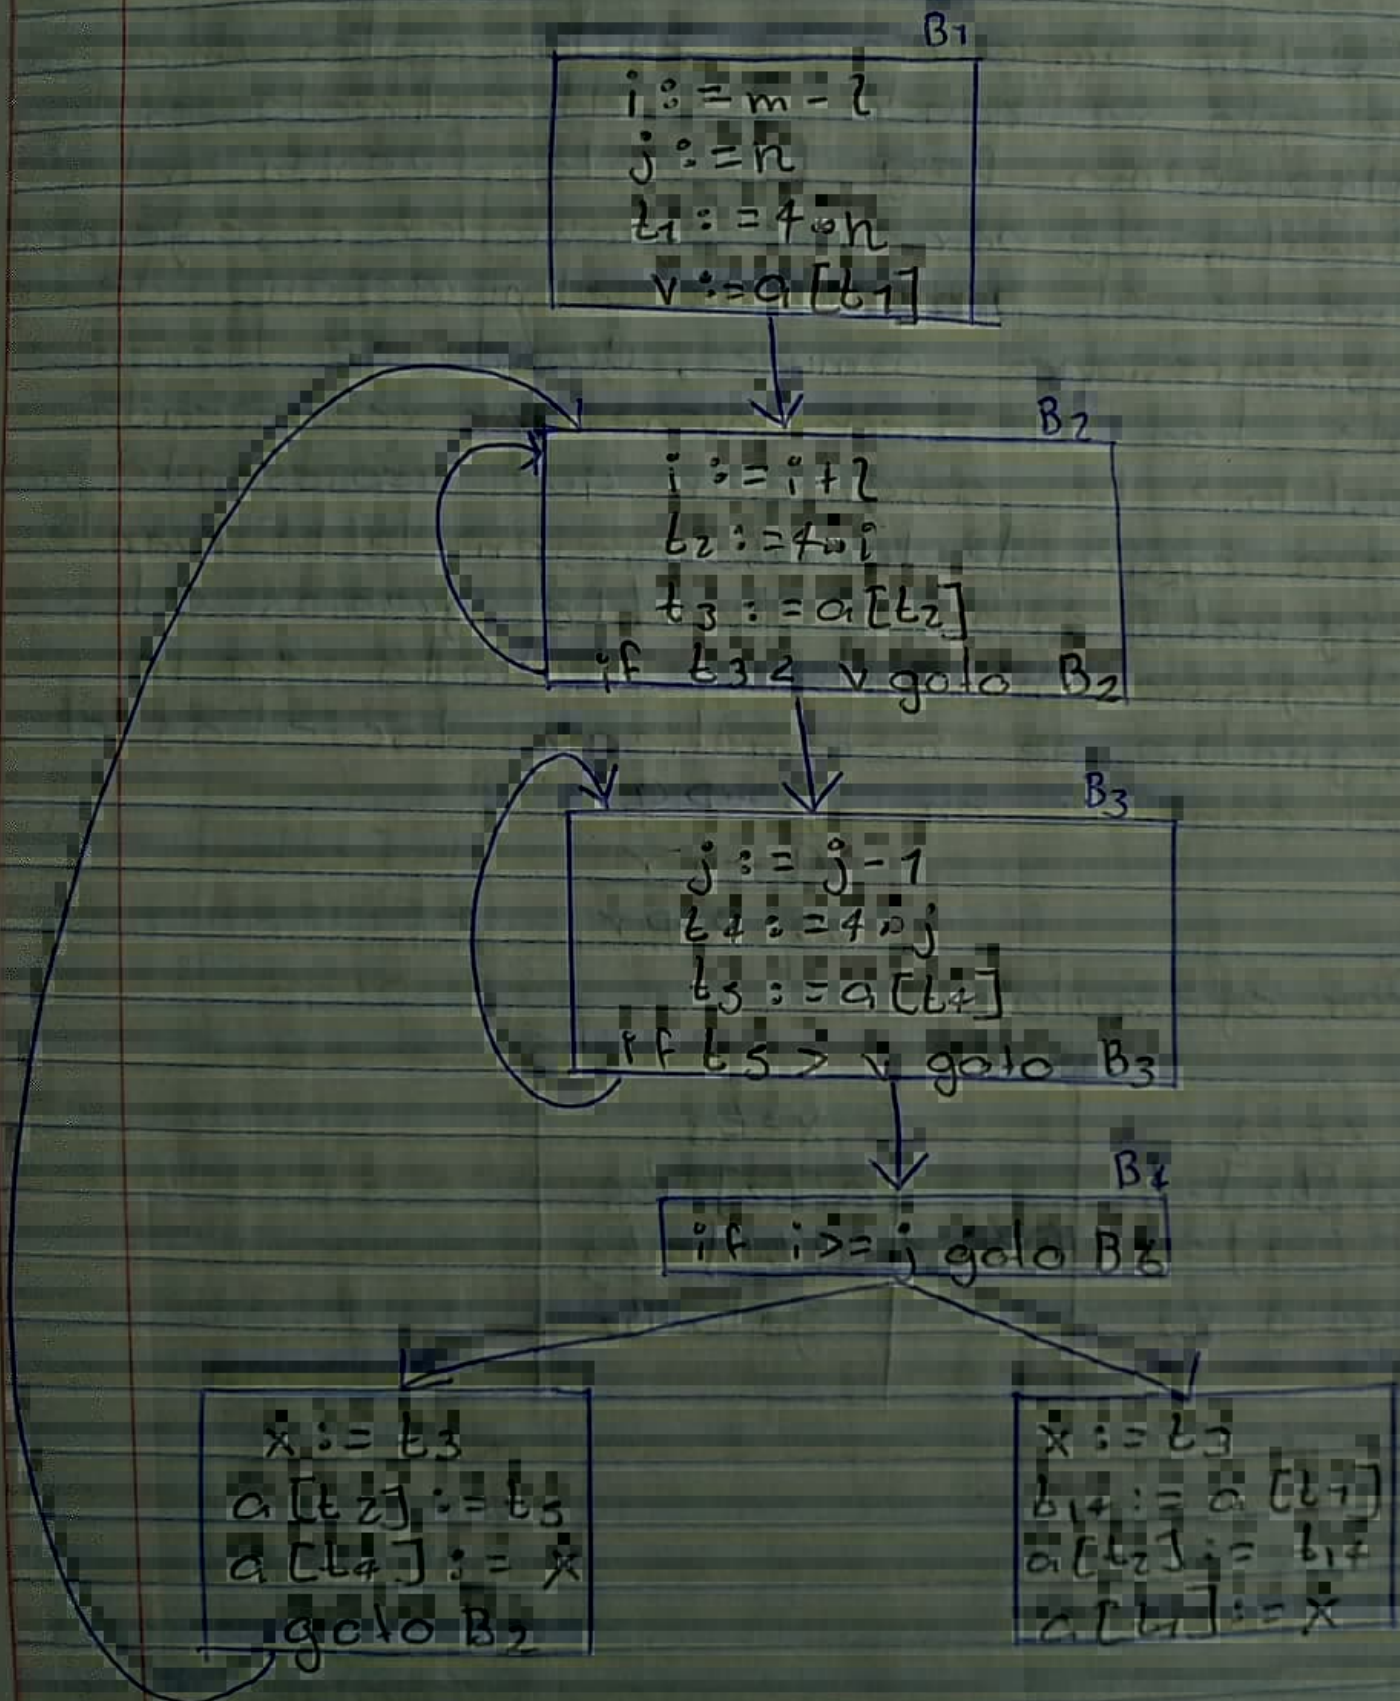 B1
i := m - 1
j := n
t1 := 4 * n
v := a[t1]
B2
i := i + 1
t2 := 4 * i
t3 := a[t2]
if t3 < v goto B2
B3
j := j - 1
t4 := 4 * j
t5 := a[t4]
if t5 > v goto B3
B4
if i >= j goto B6
x := t3
a[t2] := t5
a[t4] := x
goto B2
x := t3
t14 := a[t1]
a[t2] := t14
a[t1] := x